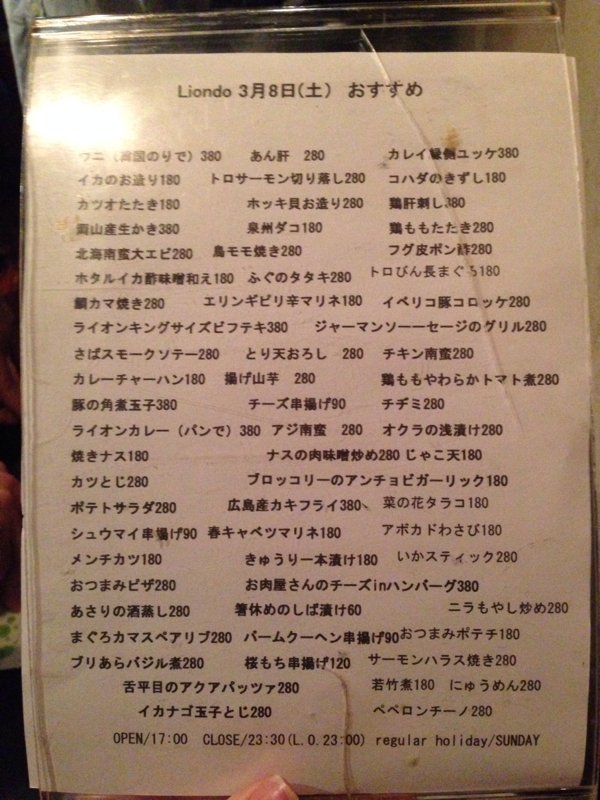 Liondo 3月8日(土) おすすめ
ウニ(韓国のりで)380 あん肝 280 カレイ縁側ユッケ380
イカのお造り180 トロサーモン切り落し280 コハダのきずし180
カツオたたき180 ホッキ貝お造り280 鶏肝刺し380
岡山産生かき380 泉州ダコ180 鶏ももたたき280
北海南蛮大エビ280 鳥モモ焼き280 フグ皮ポン酢280
ホタルイカ酢味噌和え180 ふぐのタタキ280 トロびん長まぐろ180
鯛カマ焼き280 エリンギピリ辛マリネ180 イベリコ豚コロッケ280
ライオンキングサイズビフテキ380 ジャーマンソーーセージのグリル280
さばスモークソテー280 とり天おろし 280 チキン南蛮280
カレーチャーハン180 揚げ山芋 280 鶏ももやわらかトマト煮280
豚の角煮玉子380 チーズ串揚げ90 チヂミ280
ライオンカレー(パンで)380 アジ南蛮 280 オクラの浅漬け280
焼きナス180 ナスの肉味噌炒め280 じゃこ天180
カツとじ280 ブロッコリーのアンチョビガーリック180
ポテトサラダ280 広島産カキフライ380 菜の花タラコ180
シュウマイ串揚げ90 春キャベツマリネ180 アボカドわさび180
メンチカツ180 きゅうり一本漬け180 いかスティック280
おつまみピザ280 お肉屋さんのチーズinハンバーグ380
あさりの酒蒸し280 箸休めのしば漬け60 ニラもやし炒め280
まぐろカマスペアリブ280 バームクーヘン串揚げ90 おつまみポテチ180
ブリあらバジル煮280 桜もち串揚げ120 サーモンハラス焼き280
舌平目のアクアパッツァ280 若竹煮180 にゅうめん280
イカナゴ玉子とじ280 ペペロンチーノ280
OPEN/17:00 CLOSE/23:30(L.O.23:00) regular holiday/SUNDAY